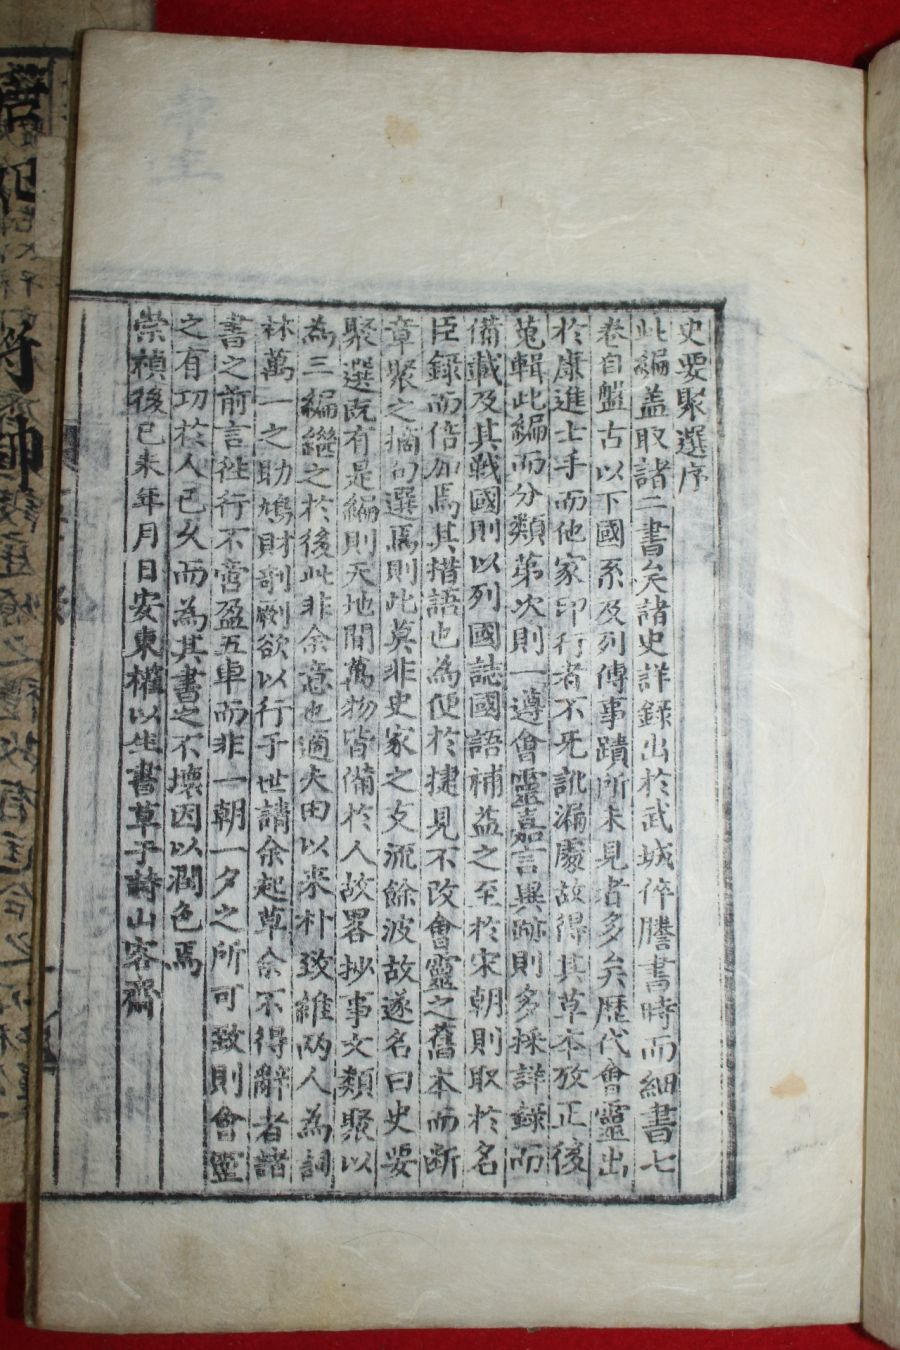 史要聚選序
此編盖取諸二書矣諸史詳錄出於武城倅謄書時而細書七
卷自盤古以下國系及列傳事蹟所未見者多矣歷代會靈出
於康進士手而他家印行者不免訛漏處故得其草本攷正後
蒐輯此編而分類第次則一遵會靈嘉言異跡則多採詳錄而
備載及其戰國則以列國誌國語補益之至於宋朝則取於名
臣錄而倍加焉其措語也為便於捷見不改會靈之舊本而斷
章聚之摘句選焉則此莫非史家之支流餘波故遂名曰史要
聚選旣有是編則天地間萬物皆備於人故畧抄事文類聚以
為三編繼之於後此非余意也適夫田以釆朴致維兩人為詞
林萬一之助鳩財剞劂欲以行于世請余起草余不得辭者諸
書之前言往行不啻盈五車而非一朝一夕之所可致則會靈
之有功於人已久而為其書之不壞因以潤色焉
崇禎後己未年月日安東權以生書草于詩山客齋
將帥